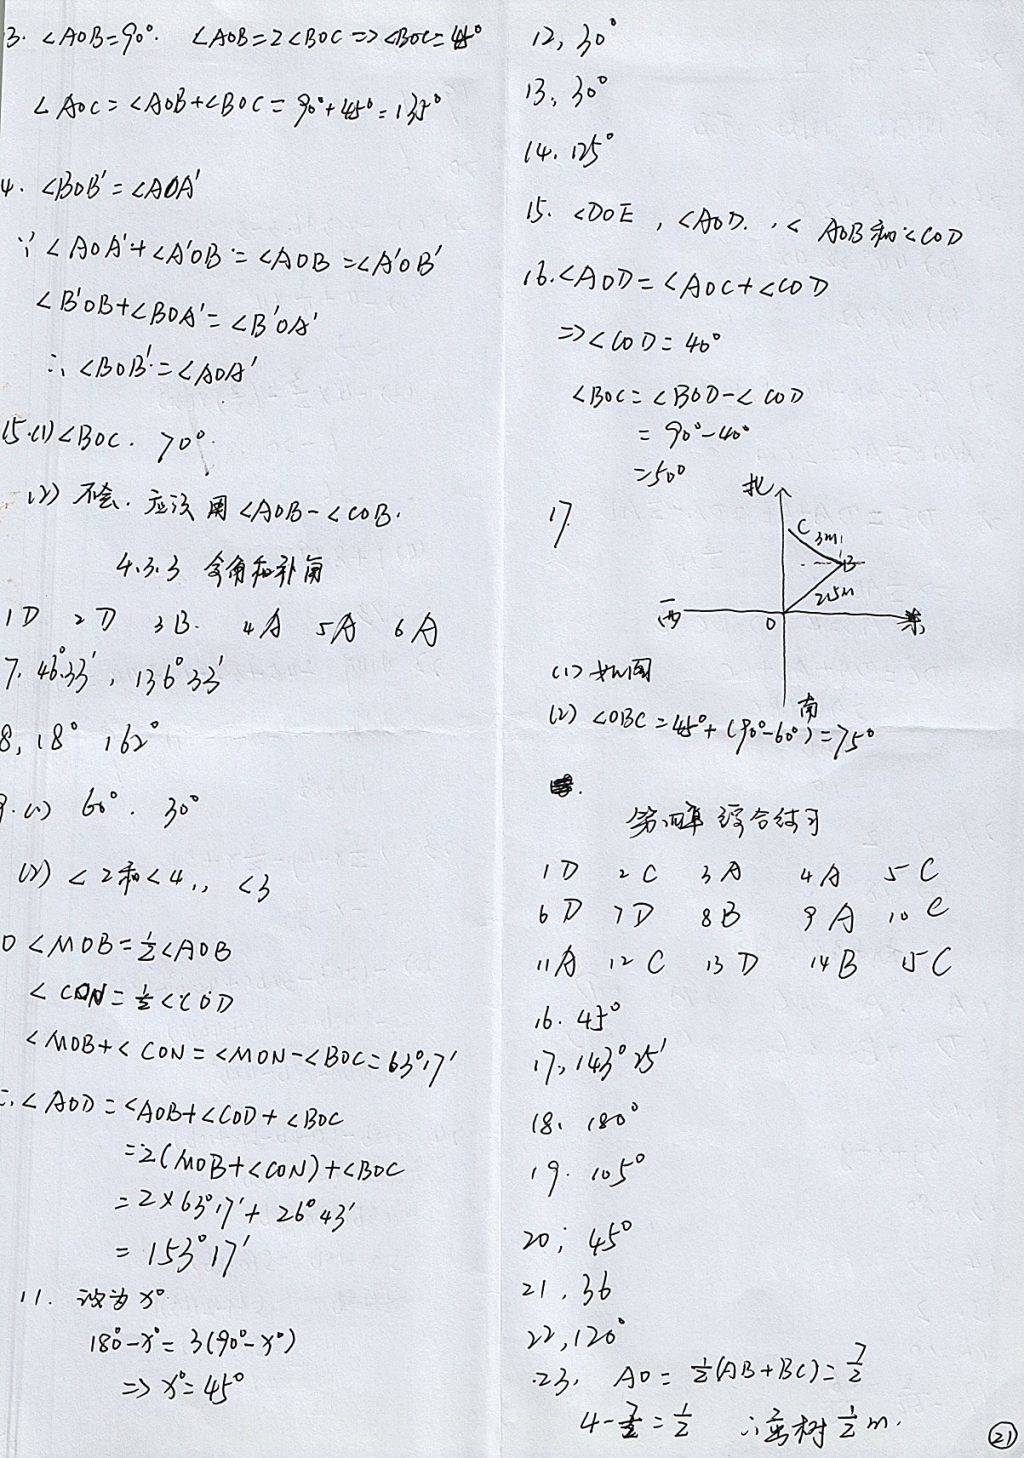 3. <AOB=90°. <AOB=2<BOC => <BOC=45°
<AOC=<AOB+<BOC=90°+45°=135°
4. <BOB'=<AOA'
∵ <AOA'+<A'OB=<AOB=<A'OB'
<B'OB+<BOA'=<B'OA'
∴ <BOB'=<AOA'
15.(1)<BOC. 70°.
(2) 不会. 应该用<AOB-<COB.
4.3.3 余角和补角
1D 2D 3B. 4A 5A 6A
7. 46°33', 136°33'
8, 18° 162°
9.(1) 60°. 30°
(2) <2和<4,, <3
0 <MOB=1/2<AOB
<CON=1/2<COD
<MOB+<CON=<MON-<BOC=63°17'
∴ <AOD=<AOB+<COD+<BOC
=2(MOB+<CON)+<BOC
=2×63°17'+26°43'
=153°17'
11. 设为x°
180°-x°=3(90°-x°)
=> x°=45°
12, 30°
13, 30°
14. 125°
15. <DOE, <AOD., < AOB和<COD
16.<AOD=<AOC+<COD
=><COD=40°
<BOC=<BOD-<COD
=90°-40°
=50°
17
北
C 3m
B
2.5m
西 O 东
南
(1) 如图
(2) <OBC=45°+(90°-60°)=75°
第四章 综合练习
1D 2C 3A 4A 5C
6D 7D 8B 9A 10C
11A 12C 13D 14B 15C
16. 45°
17, 143°25'
18. 180°
19. 105°
20; 45°
21, 36
22, 120°
23, AO=1/2(AB+BC)=7/2
4-7/2=1/2 ∴离树1/2m.
21